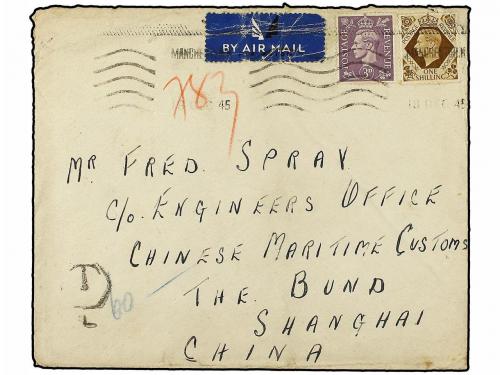 BY AIR MAIL
POSTAGE REVENUE
3D
ONE SHILLING
MANCHE
DEC 45
18 DEC 45
783
MR FRED. SPRAY
C/o. ENGINEERS OFFICE
CHINESE MARITIME CUSTOMS
THE BUND
SHANGHAI
CHINA
T
60